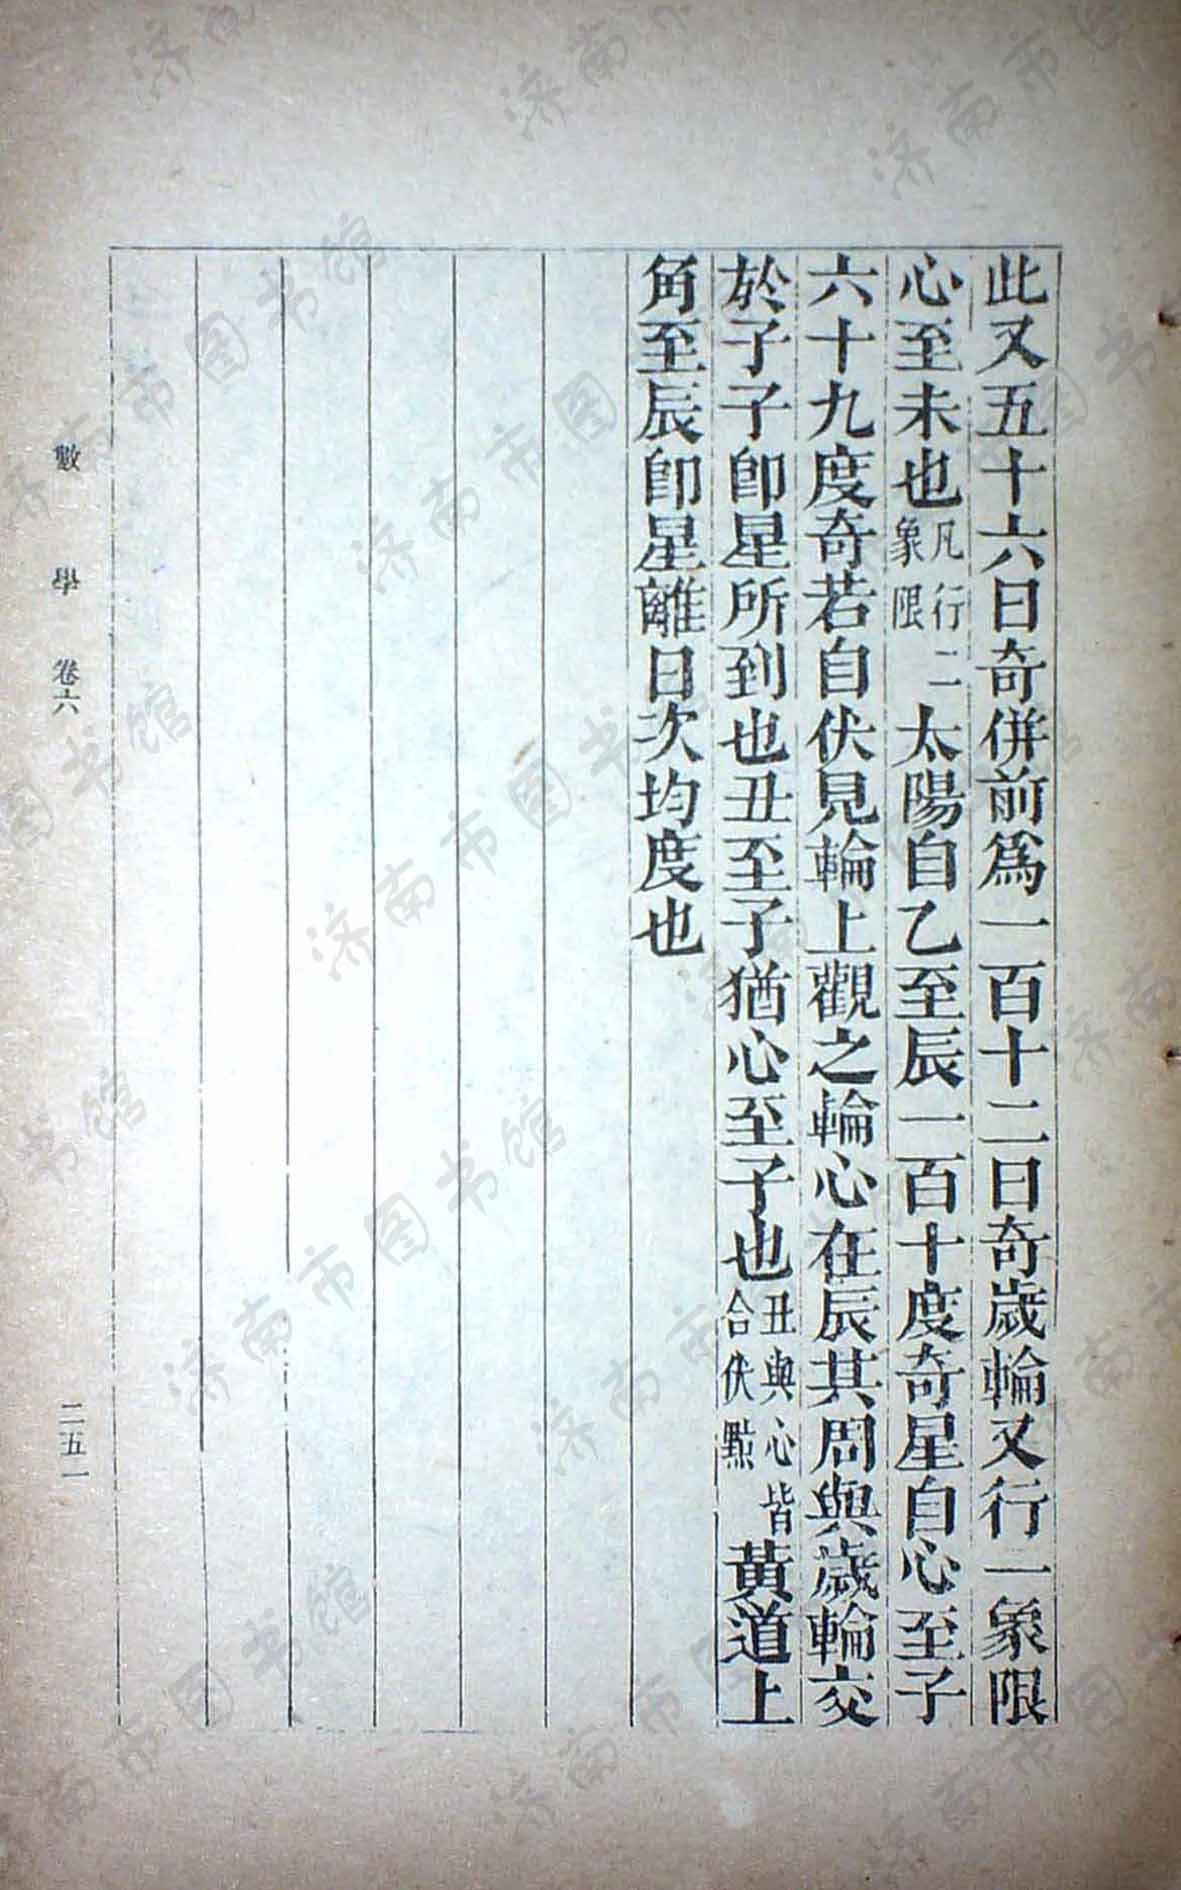 此又五十六日奇併前爲一百十二日奇歲輪又行一象限
心至未也凡行二象限太陽自乙至辰一百十度奇星自心至子
六十九度奇若自伏見輪上觀之輪心在辰其周與歲輪交
於子子卽星所到也丑至子猶心至子也丑與心皆合伏點黃道上
角至辰卽星離日次均度也
數學 卷六 二五一
济南市图书馆